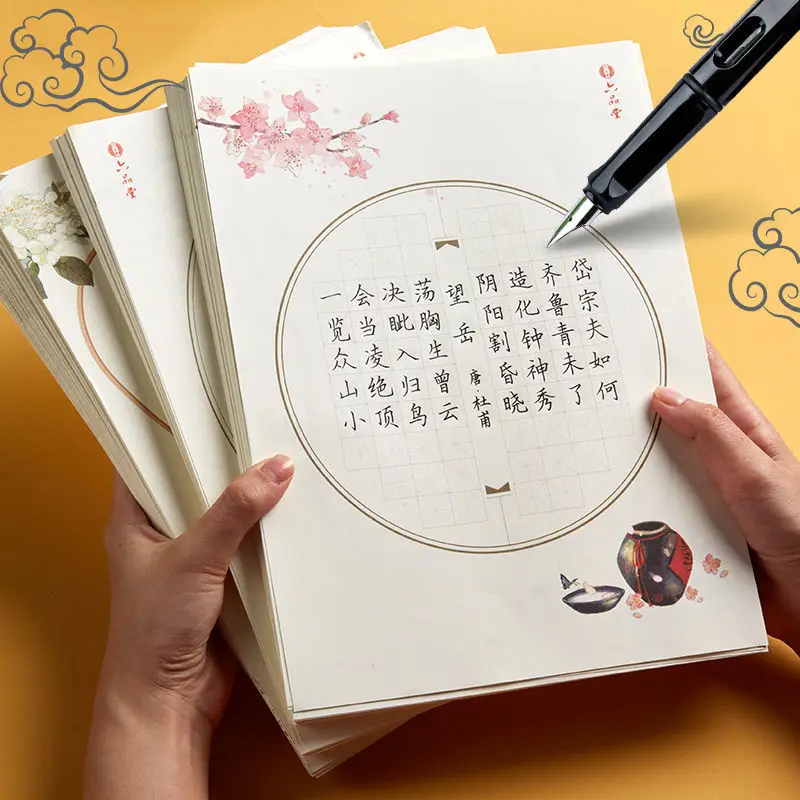 六品堂
六品堂
岱宗夫如何
齐鲁青未了
造化钟神秀
阴阳割昏晓
望岳 唐·杜甫
荡胸生曾云
决眦入归鸟
会当凌绝顶
一览众山小